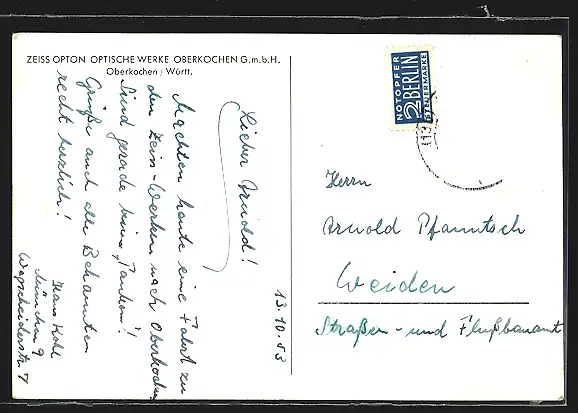 ZEISS OPTON OPTISCHE WERKE OBERKOCHEN G.m.b.H.
Oberkochen / Württ.
13.10.53
Lieber Arnold!
Machten heute eine Fahrt zu
den Zeiss-Werken nach Oberkochen.
Sind gerade beim „Tanken"!
Grüße auch alle Bekannten
recht herzlich!
Hans
München 9
7
NOTOPFER
2 BERLIN
STEUERMARKE
Herrn
Arnold Pfanntsch
Weiden
Straßen- und Flußbauamt